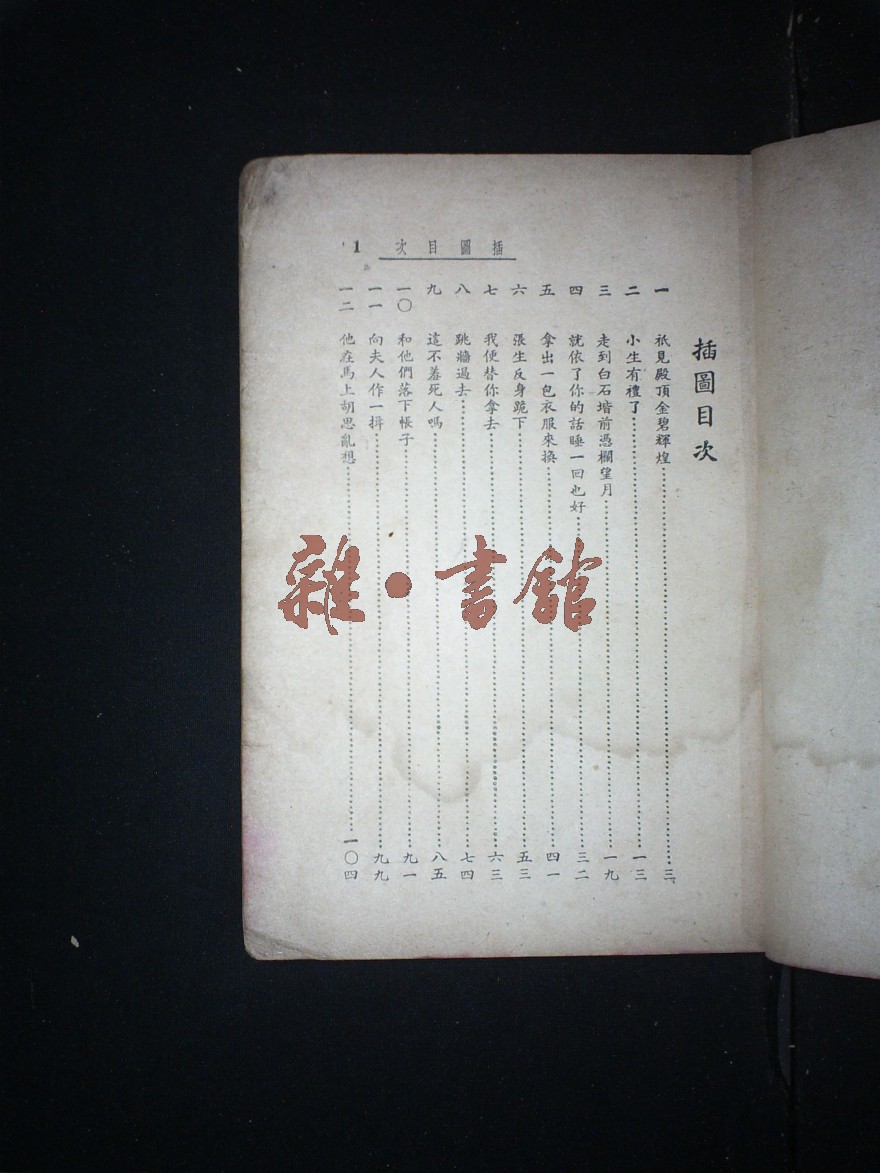 插圖目次 1
插圖目次
一 祇見殿頂金碧輝煌……三
二 小生有禮了……一三
三 走到白石堦前憑欄望月……一九
四 就依了你的話睡一回也好……三二
五 拿出一包衣服來換……四一
六 張生反身跪下……五三
七 我便替你拿去……六三
八 跳牆過去……七四
九 這不羞死人嗎……八五
一〇 和他們落下帳子……九一
一一 向夫人作一揖……九九
一二 他在馬上胡思亂想……一〇四
雜·書館